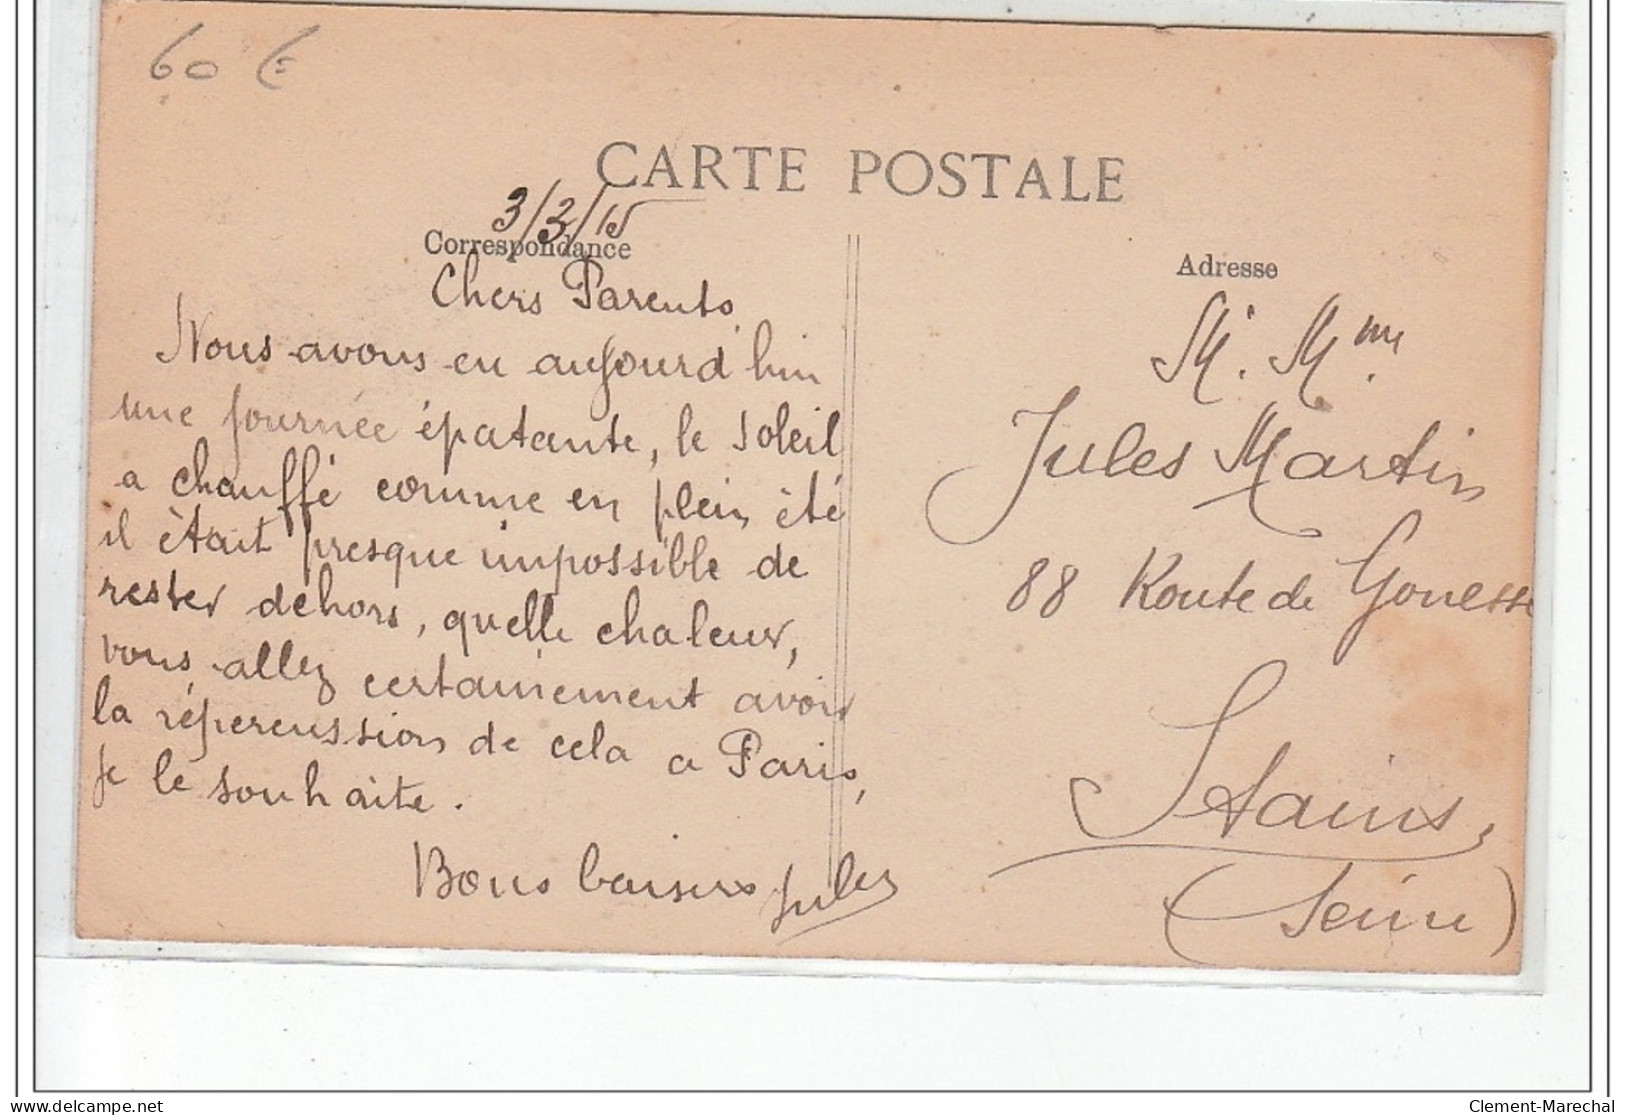 60 €
CARTE POSTALE
3/3/15
Correspondance
Chers Parents
Nous avons eu aujourd'hui
une journée épatante, le soleil
a chauffé comme en plein été
il était presque impossible de
rester dehors, quelle chaleur,
vous allez certainement avoir
la répercussion de cela a Paris,
je le souhaite.
Bons baisers Jules
Adresse
M. Mme.
Jules Martin
88 Route de Gonesse
Stains,
(Seine)
delcampe.net
Clement-Marechal